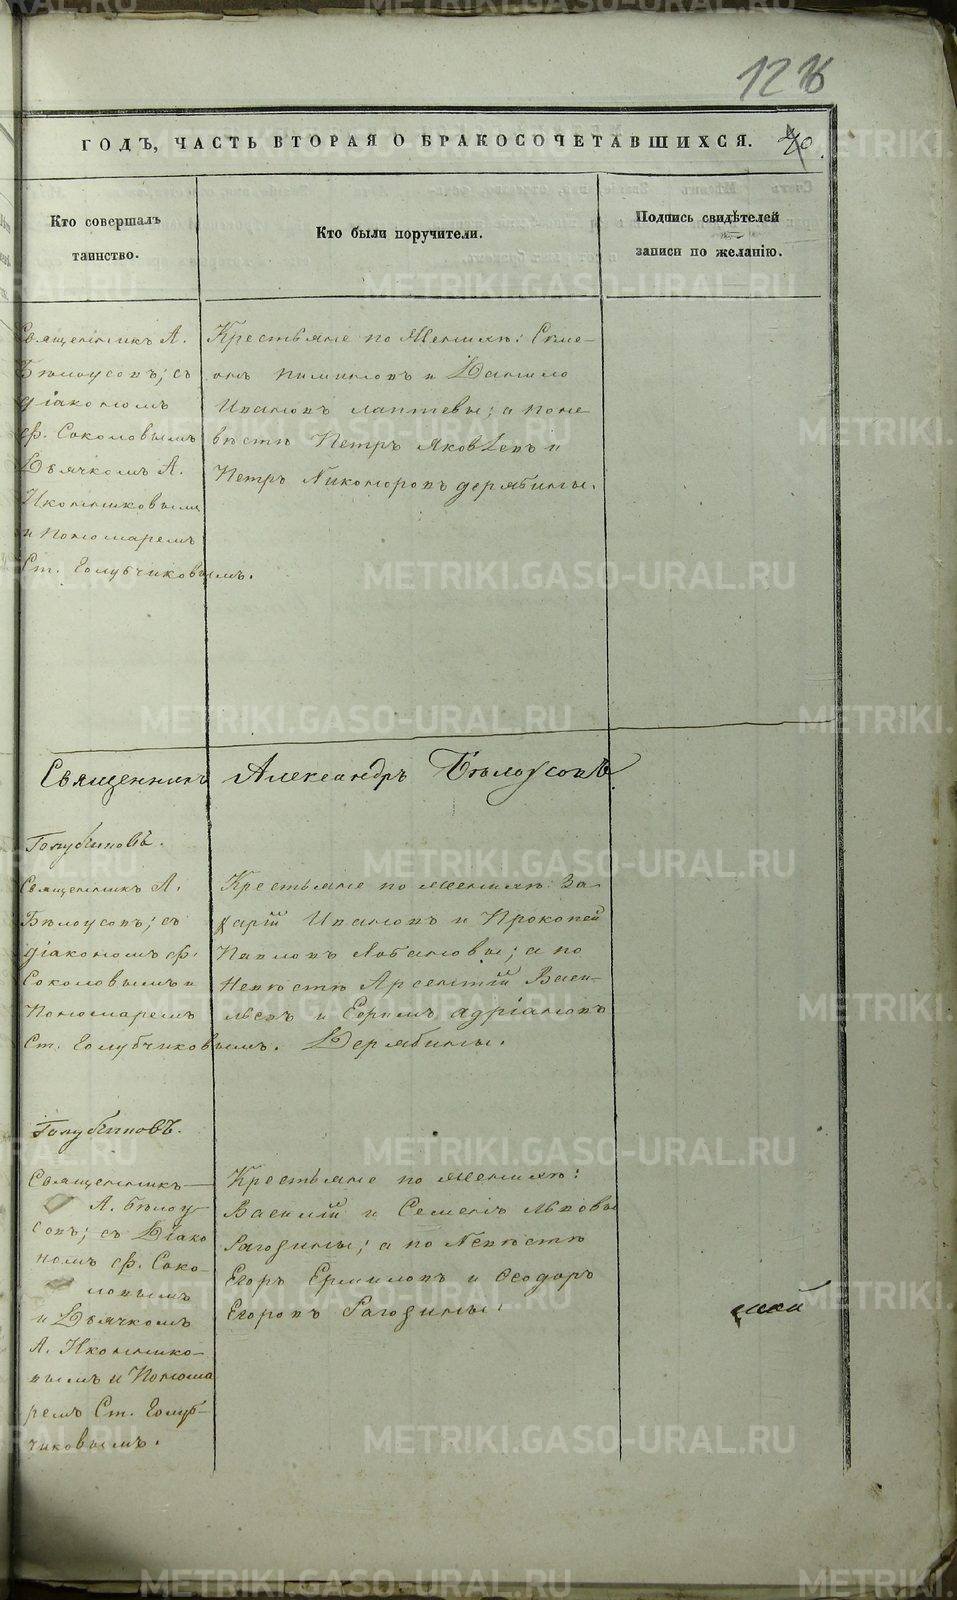 126
ГОДЪ, ЧАСТЬ ВТОРАЯ О БРАКОСОЧЕТАВШИХСЯ. 40.
Кто совершалъ
таинство.
Кто были поручители.
Подпись свидѣтелей
записи по желанію.
Священникъ А.
Бѣлоусовъ; съ
діакономъ
Ф. Соколовымъ
Дьячкомъ А.
Иконниковымъ
и Пономаремъ
Ст. Голубчиковымъ.
Крестьяне по Женихѣ: Семе-
онъ Пименовъ и Данило
Ивановъ Лаптевы; а по не-
вѣстѣ Петръ Яковлевъ и
Петръ Никоноровъ Дерябины.
Священникъ Александръ Бѣлоусовъ
Священникъ А.
Бѣлоусовъ; съ
діакономъ Ф.
Соколовымъ и
Пономаремъ
Ст. Голубчиковымъ.
Крестьяне по женихѣ: За-
харій Ивановъ и Прокопей
Павловъ Лобановы; а по
Невѣстѣ Арсентій Васи-
льевъ и Ефимъ Адріановъ
Дерябины.
Священникъ
А. Бѣлоу-
совъ; съ Діако
номъ Ф. Соко-
ловымъ
и Дьячкомъ
А. Иконнико-
вымъ и Понома
ремъ Ст. Голуб-
чиковымъ.
Крестьяне по женихѣ:
Василій и Семенъ Львовы
Рагозины; а по Невѣстѣ
Егоръ Ермиловъ и Ѳеодоръ
Егоровъ Рагозины.
METRIKI.GASO-URAL.RU